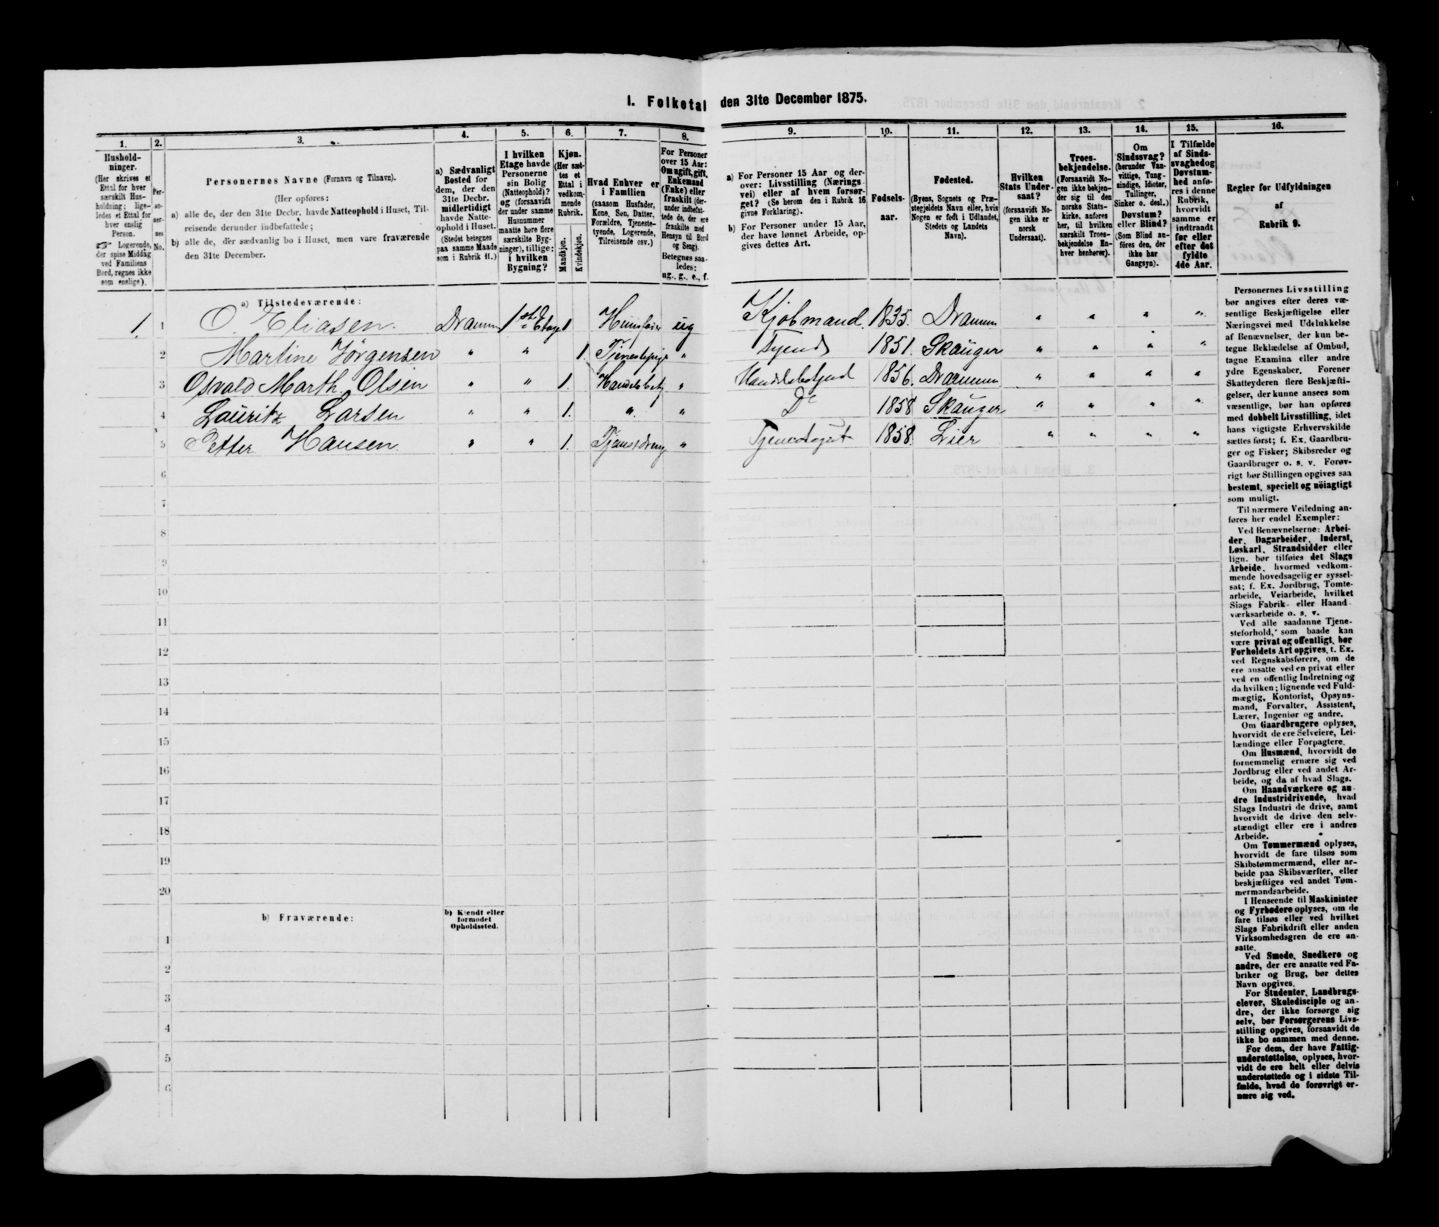 I. Folketal den 31te December 1875.
1. 2. 3. 4. 5. 6. 7. 8. 9. 10. 11. 12. 13. 14. 15. 16.
Hushold-
ninger.
(Her skrives et
Ettal for hver
særskilt Hus-
holdning; lige-
ledes et Ettal for
hver enslig
Person.
Logerende,
der spise Middag
ved Familiens
Bord, regnes ikke
som enslige).
Per-
so-
ner-
nes
No.
Personernes Navne (Fornavn og Tilnavn).
(Her opføres:
a) alle de, der den 31te Decbr. havde Natteophold i Huset, Til-
reisende derunder indbefattede;
b) alle de, der sædvanlig bo i Huset, men vare fraværende
den 31te December.
a) Sædvanligt
Bosted for
dem, der den
31te Decbr.
midlertidigt
havde Natte-
ophold i Huset.
(Stedet betegnes
paa samme Maade
som i Rubrik 11.)
I hvilken
Etage havde
Personerne
sin Bolig
(Natteophold)?
og (forsaavidt
der under samme
Husnummer
maatte høre flere
særskilte Byg-
ninger), tillige:
i hvilken
Bygning?
Kjøn.
(Her sæt-
tes et
Ettal i
vedkom-
mende
Rubrik.
Mandkjøn.
Kvindekjøn.
Hvad Enhver er
i Familien
(saasom Husfader,
Kone, Søn, Datter,
Forældre, Tjeneste-
tyende, Logerende,
Tilreisende osv.)
For Personer
over 15 Aar:
Om ugift, gift,
Enkemand
(Enke) eller
fraskilt (der-
under indbefat-
tede de, der ere
fraskilte med
Hensyn til Bord
og Seng).
Betegnes saa-
ledes:
ug., g., e., f.
a) For Personer 15 Aar og der-
over: Livsstilling (Nærings-
vei) eller af hvem forsør-
get? (Se herom den i Rubrik 16
givne Forklaring).
b) For Personer under 15 Aar,
der have lønnet Arbeide, op-
gives dettes Art.
Fødsels-
aar.
Fødested.
(Byens, Sognets og Præ-
stegjeldets Navn eller, hvis
Nogen er født i Udlandet,
Stedets og Landets
Navn).
Hvilken
Stats Under-
saat?
(forsaavidt No-
gen ikke er
norsk
Undersaat).
Troes-
bekjendelse.
(Forsaavidt No-
gen ikke bekjen-
der sig til den
norske Stats-
kirke, anføres
her, til hvilken
særskilt Troes-
bekjendelse En-
hver henhører).
Om
Sindssvag?
(herunder Van-
vittige, Tung-
sindige, Idioter,
Tullinger,
Sinker o. desl.)
Døvstum?
eller Blind?
(Som Blind an-
føres den, der
ikke har
Gangsyn).
I Tilfælde
af Sinds-
svaghed og
Døvstum-
hed anfø-
res i denne
Rubrik,
hvorvidt
samme er
indtraadt
før eller
efter det
fyldte
4de Aar.
Regler for Udfyldningen
af
Rubrik 9.
a) Tilstedeværende:
1 1 O. Eliasen. Drammen 1ste Etage 1 Husfader ug Kjøbmand. 1835. Drammen " " " "
2 Martine Jørgensen " " 1. Tjenestepige " Tyende 1851. Skauger " " " "
3 Osvald Marth. Olsen " " 1. Handelsbetj " Handelsbetjend 1856. Drammen " " " "
4 Lauritz Larsen " " 1. " " Do 1858 Skauger " " " "
5 Petter Hansen. " " 1. " Tjenestegut 1858. Lier " " " "
6
7
8
9
10
11
12
13
14
15
16
17
18
19
20
b) Fraværende:
b) Kjendt eller
formodet
Opholdssted.
1
2
3
4
5
6
Personernes Livsstilling
bør angives efter deres væ-
sentlige Beskjæftigelse eller
Næringsvei med Udelukkelse
af Benævnelser, der kun be-
tegne Beklædelse af Ombud,
tagne Examina eller andre
ydre Egenskaber. Forener
Skatteyderen flere Beskjæfti-
gelser, der kunne ansees som
væsentlige, bør han opføres
med dobbelt Livsstilling, idet
hans vigtigste Erhvervskilde
sættes først; f. Ex. Gaardbru-
ger og Fisker; Skibsreder og
Gaardbruger o. s. v. Forøv-
rigt bør Stillingen opgives saa
bestemt, specielt og nøiagtigt
som muligt.
Til nærmere Veiledning an-
føres her endel Exempler:
Ved Benævnelserne: Arbei-
der, Dagarbeider, Inderst,
Løskarl, Strandsidder eller
lign. bør tilføies det Slags
Arbeide, hvormed vedkom-
mende hovedsagelig er syssel-
sat; f. Ex. Jordbrug, Tomte-
arbeide, Veiarbeide, hvilket
Slags Fabrik- eller Haand-
værksarbeide o. s. v.
Ved alle saadanne Tjene-
steforhold, som baade kan
være privat og offentligt, bør
Forholdets Art opgives, t. Ex.
ved Regnskabsførere, om de
ere ansatte ved en privat eller
ved en offentlig Indretning og
da hvilken; lignende ved Fuld-
mægtig, Kontorist, Opsyns-
mand, Forvalter, Assistent,
Lærer, Ingeniør og andre.
Om Gaardbrugere oplyses,
hvorvidt de ere Selveiere, Lei-
lændinge eller Forpagtere.
Om Husmænd, hvorvidt de
fornemmelig ernære sig ved
Jordbrug eller ved andet Ar-
beide, og da af hvad Slags.
Om Haandværkere og an-
dre Industridrivende, hvad
Slags Industri de drive, samt
hvorvidt de drive den selv-
stændigt eller ere i andres
Arbeide.
Om Tømmermænd oplyses,
hvorvidt de fare tilsøs som
Skibstømmermænd, eller ar-
beide paa Skibsværfter, eller
beskjæftiges ved andet Tøm-
mermandsarbeide.
I Henseende til Maskinister
og Fyrbødere oplyses, om de
fare tilsøs eller ved hvilket
Slags Fabrikdrift eller anden
Virksomhedsgren de ere an-
satte.
Ved Smede, Snedkere og
andre, der ere ansatte ved Fa-
briker og Brug, bør dettes
Navn opgives.
For Studenter, Landbrugs-
elever, Skoledisciple og an-
dre, der ikke forsørge sig
selv, bør Forsørgerens Livs-
stilling opgives, forsaavidt de
ikke bo sammen med denne.
For dem, der have Fattig-
understøttelse, oplyses, hvor-
vidt de ere helt eller delvis
understøttede og i sidste Til-
fælde, hvad de forøvrigt er-
nære sig ved.